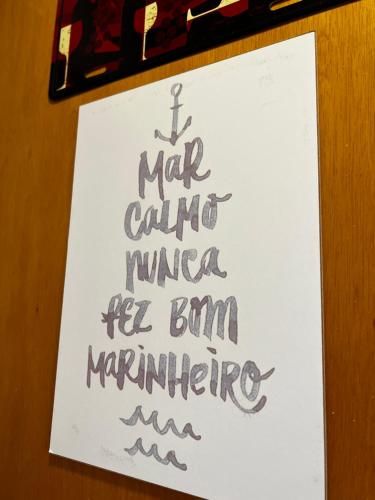 MAR
CALMO
NUNCA
FEZ BOM
MARINHEIRO